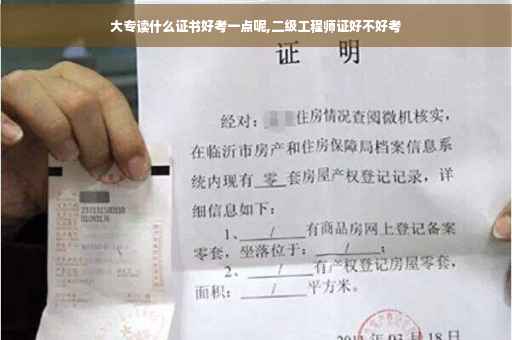 大专读什么证书好考一点呢,二级工程师证好不好考
证 明
经对: 住房情况查阅微机核实,
在临沂市房产和住房保障局档案信息系
统内现有 零 套房屋产权登记记录，详
细信息如下：
1、 / 有商品房网上登记备案
零套，坐落位于： / ；
2、 / 有产权登记房屋零套，
面积： / 平方米。
03 月 18 日